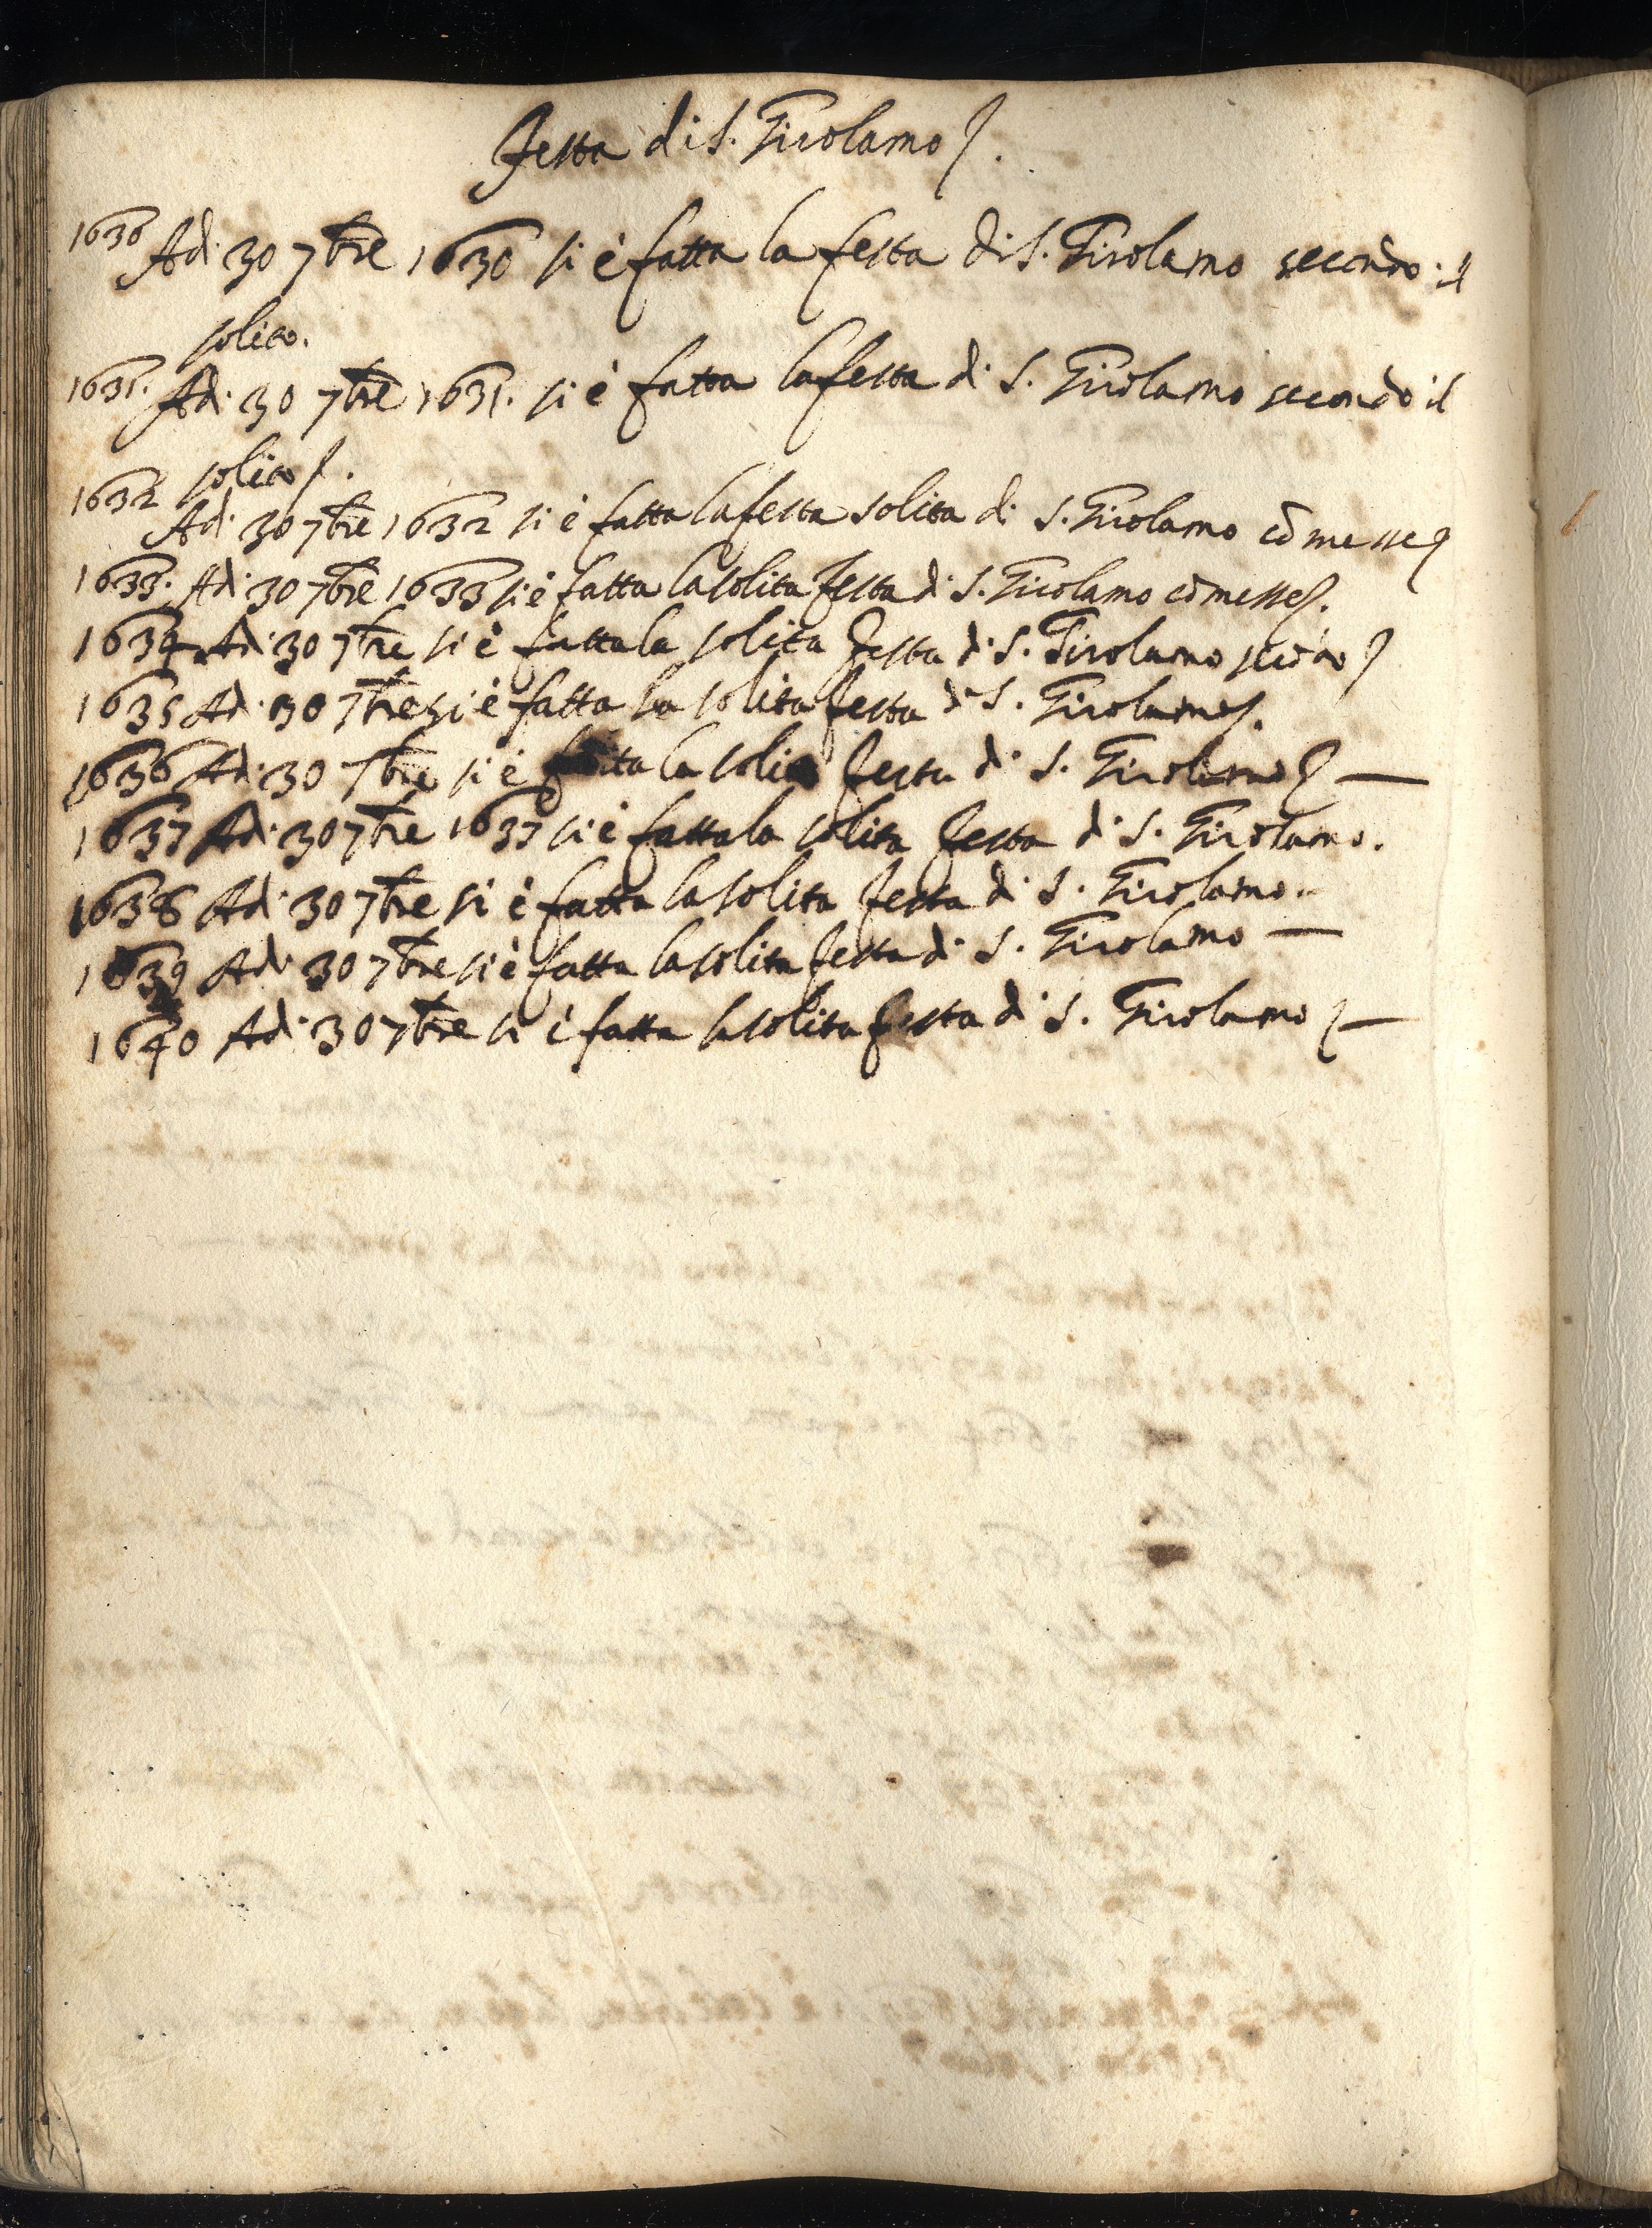 Festa di S. Girolamo
1630 Adi 30 7bre 1630 si è fatta la festa di S. Girolamo secondo il
solito.
1631. Adi 30 7bre 1631. si è fatta la festa di S. Girolamo secondo il
solito.
1632 Adi 30 7bre 1632 si è fatta la festa solita di S. Girolamo cõ messe
1633. Adi 30 7bre 1633 si è fatta la solita festa di S. Girolamo cõ messe.
1634 Adi 30 7bre si è fatta la solita festa di S. Girolamo
1635 Adi 30 7bre si è fatta la solita festa di S. Girolamo.
1636 Adi 30 7bre si è fatta la solita festa di S. Girolamo —
1637 Adi 30 7bre 1637 si è fatta la solita festa di S. Girolamo.
1638 Adi 30 7bre si è fatta la solita festa di S. Girolamo.
1639 Adi 30 7bre si è fatta la solita festa di S. Girolamo —
1640 Adi 30 7bre si è fatta la solita festa di S. Girolamo —